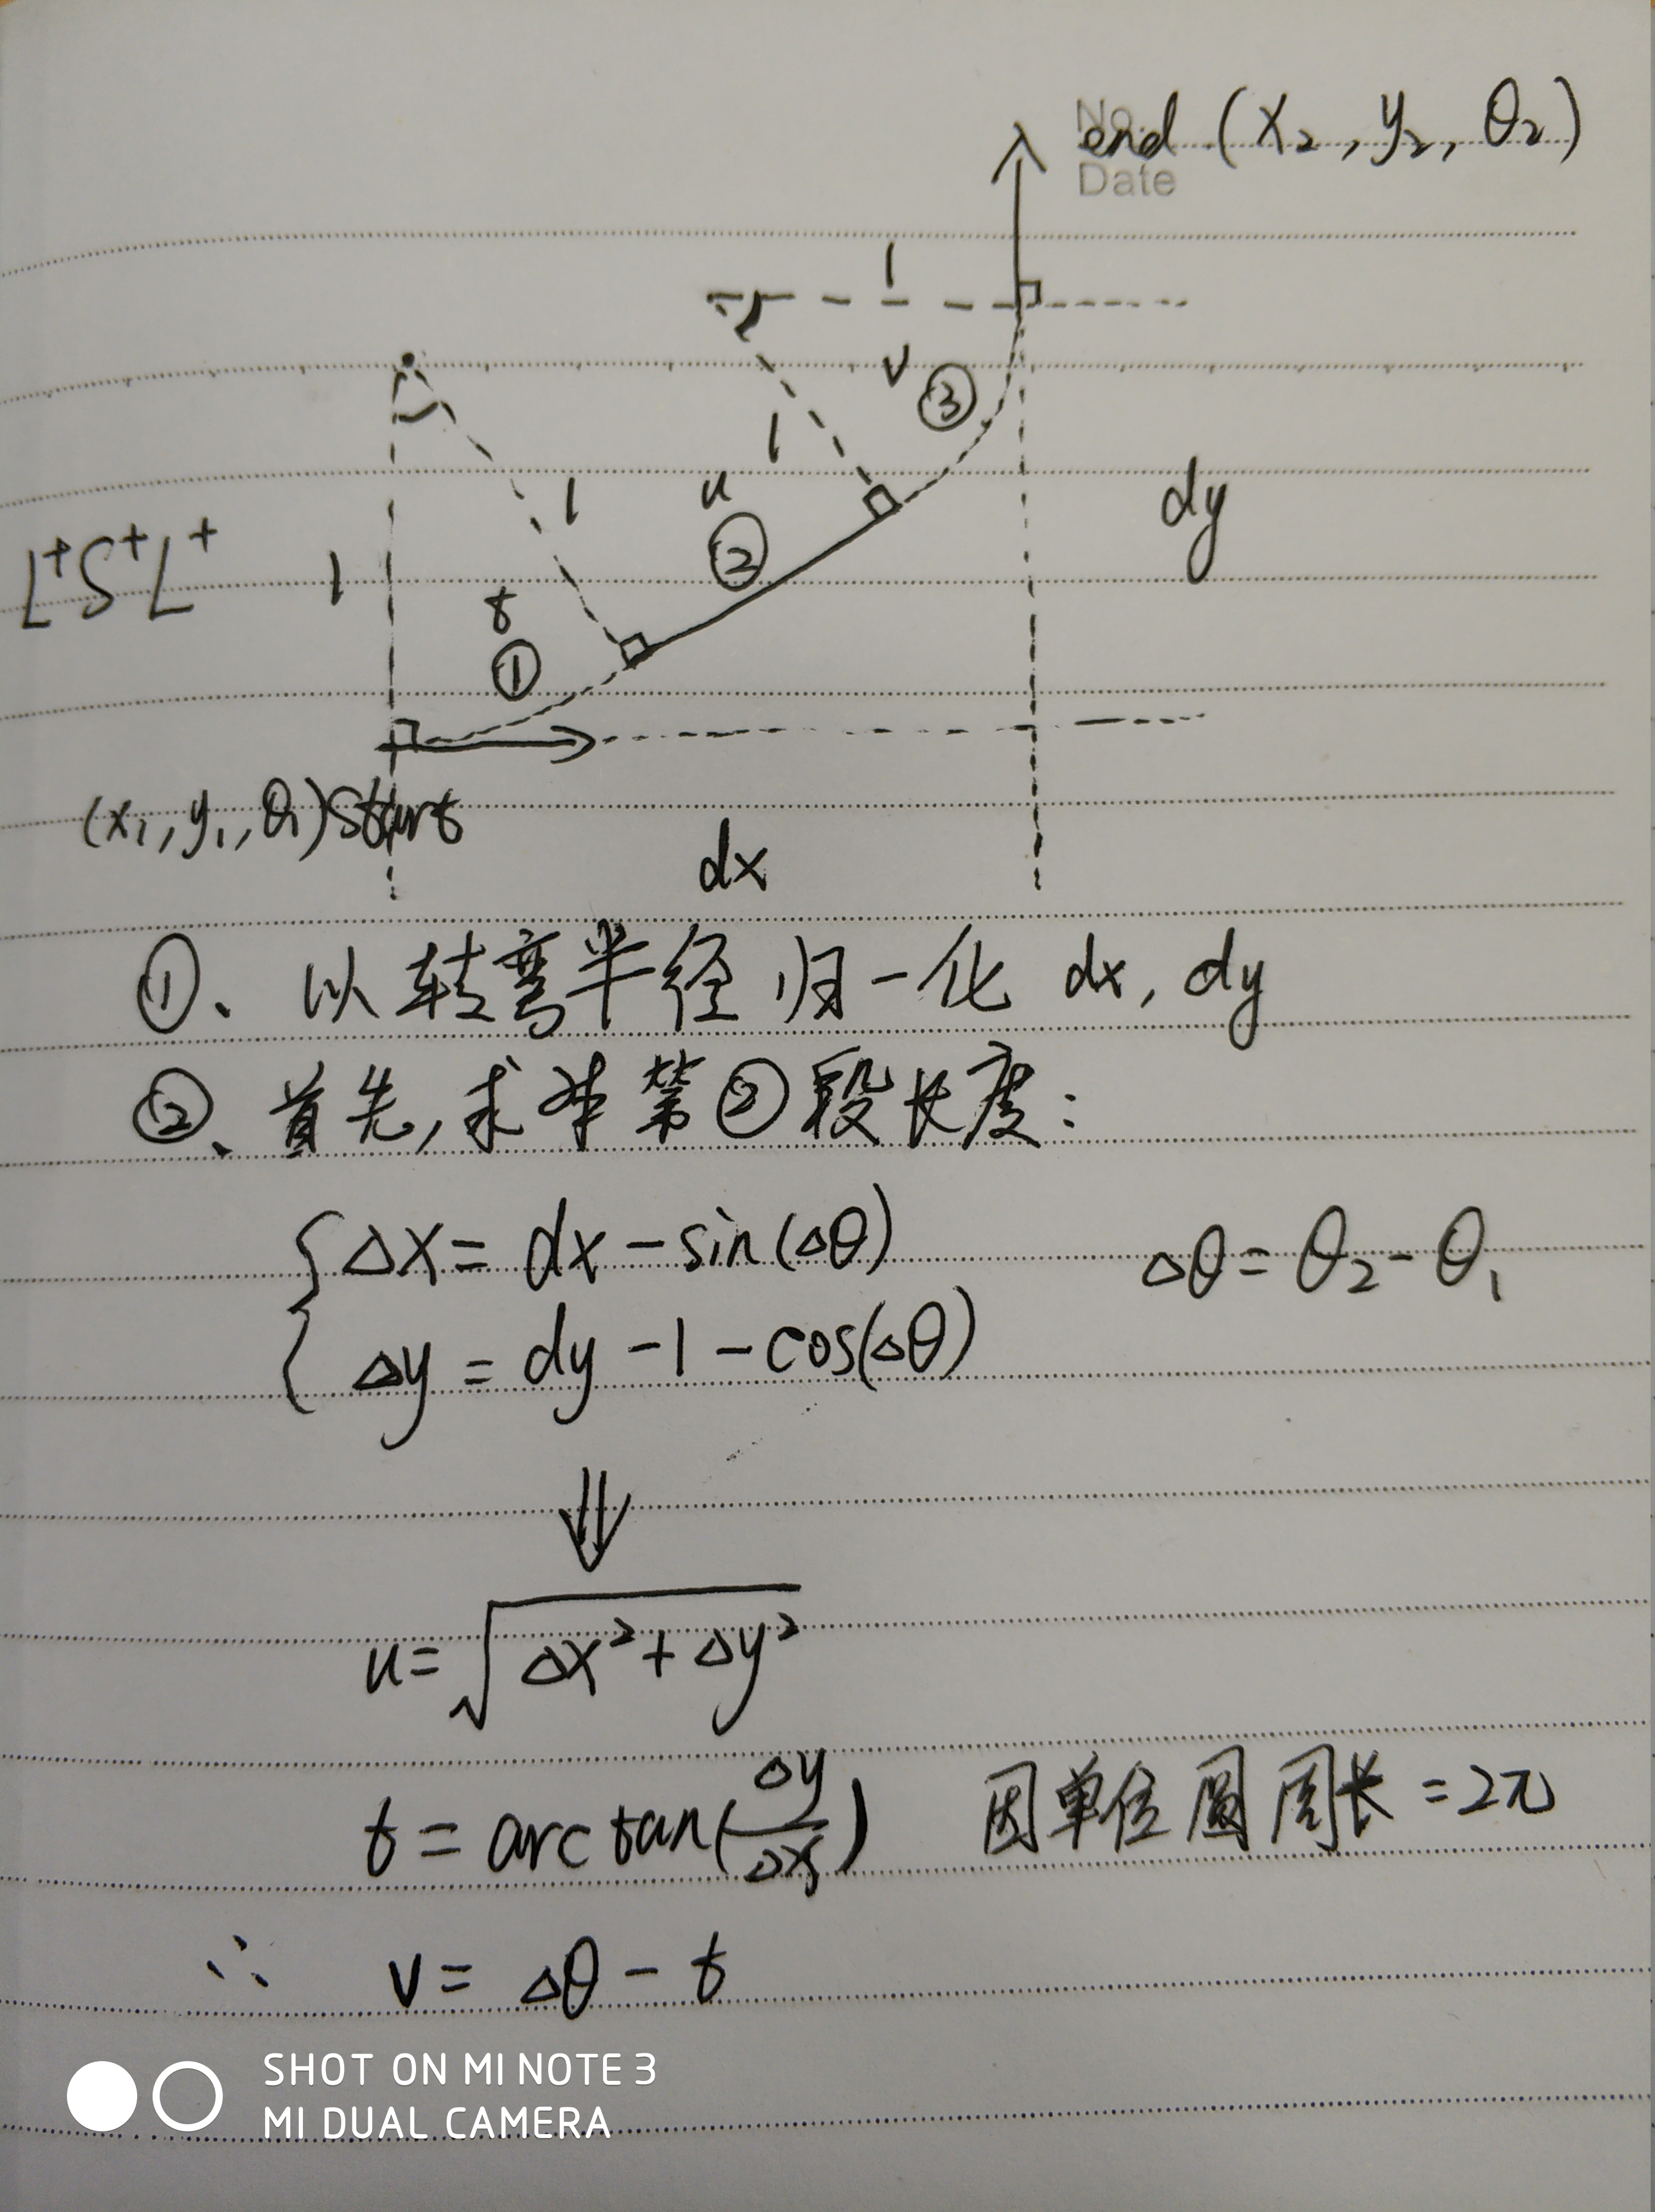 No.
end (x₂, y₂, θ₂)
Date
1
v
③
1
u
1
dy
②
L⁺S⁺L⁺
1
t
①
(x₁, y₁, θ₁) Start
dx
①、以转弯半径归一化 dx, dy
②、首先,求本第②段长度:
Δx = dx - sin(Δθ)
Δθ = θ₂ - θ₁
Δy = dy - 1 - cos(Δθ)
⇓
u = √(Δx² + Δy²)
t = arctan(Δy/Δx) 因单位圆周长 = 2π
∴ v = Δθ - t
SHOT ON MI NOTE 3
MI DUAL CAMERA